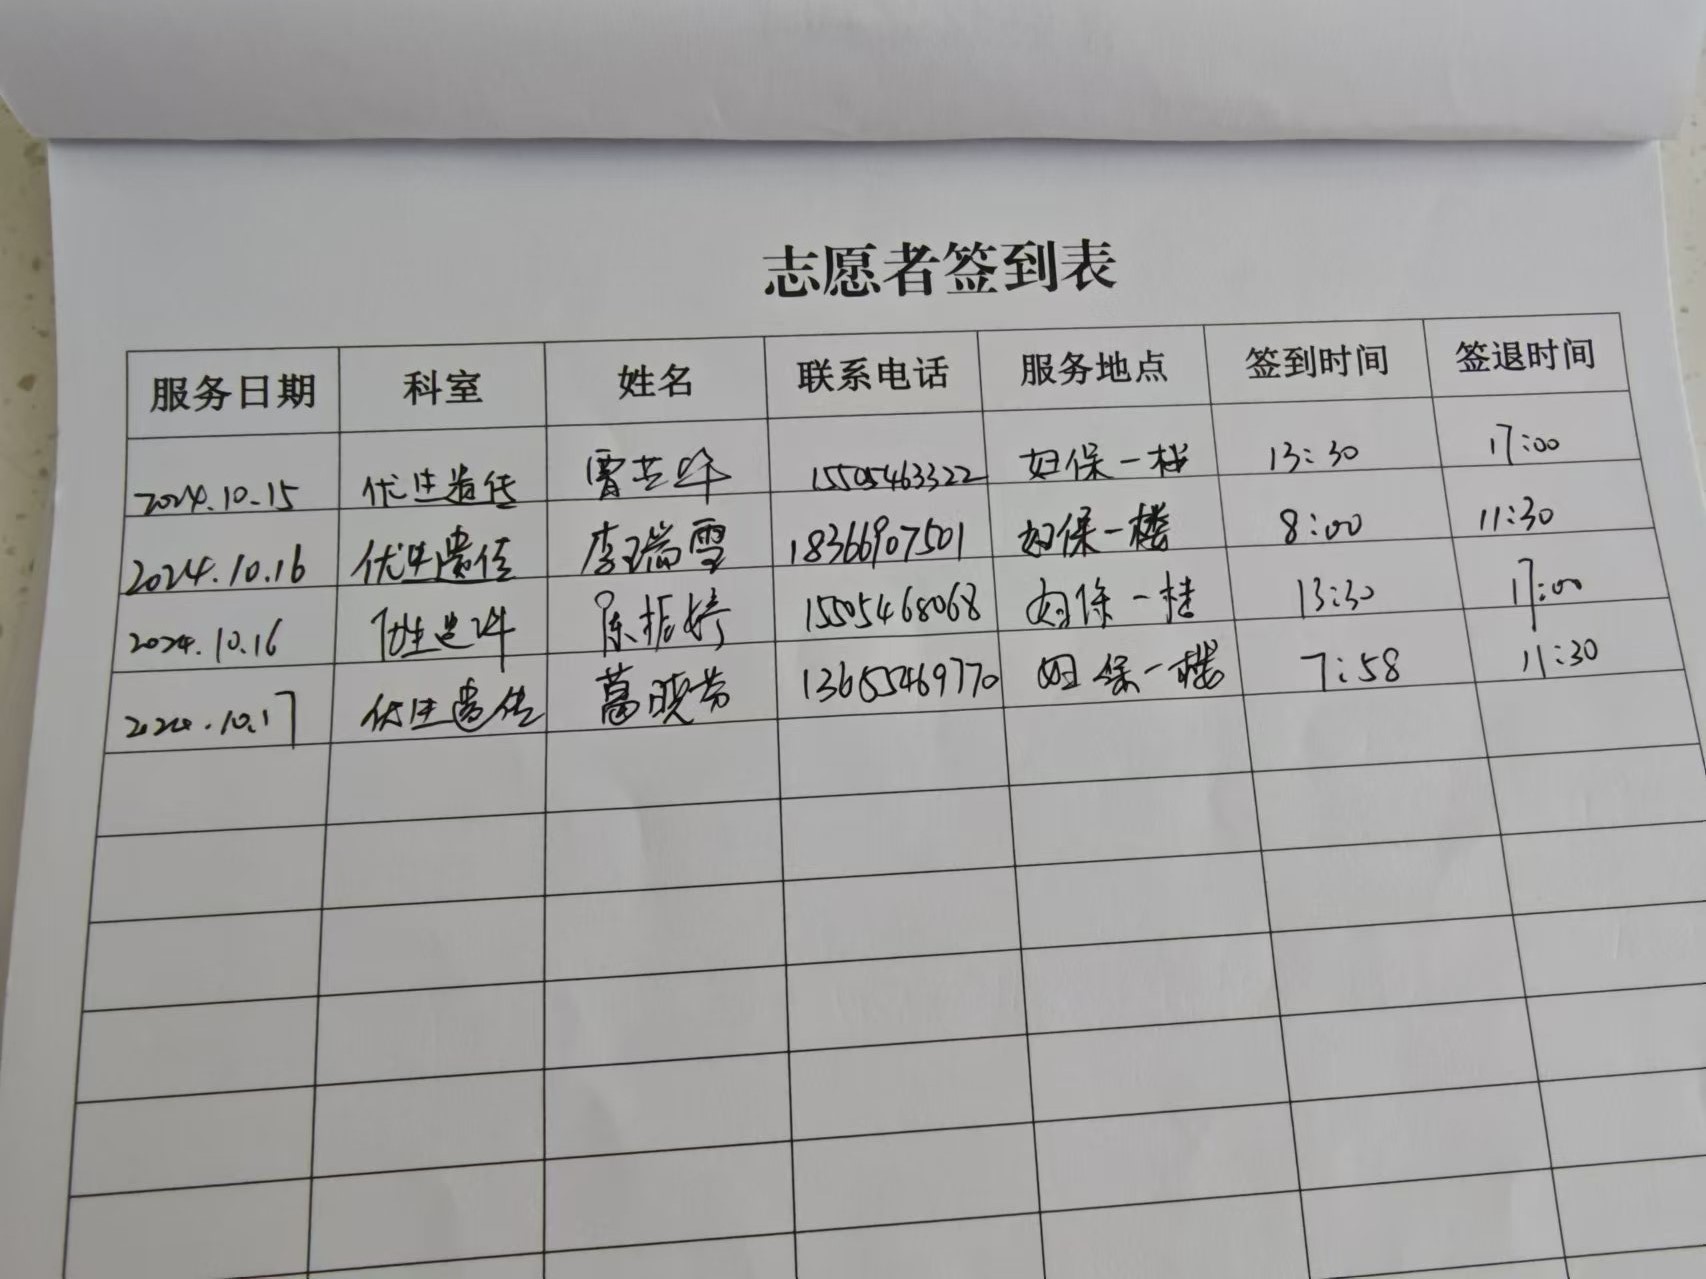 志愿者签到表
服务日期 科室 姓名 联系电话 服务地点 签到时间 签退时间
2024.10.15 优生遗传 15505463322 妇保一楼 13:30 17:00
2024.10.16 优生遗传 李瑞雪 18366907501 妇保一楼 8:00 11:30
2024.10.16 优生遗传 陈振婷 15505468068 妇保一楼 13:30 17:00
2024.10.17 优生遗传 葛晓芳 13655469770 妇保一楼 7:58 11:30